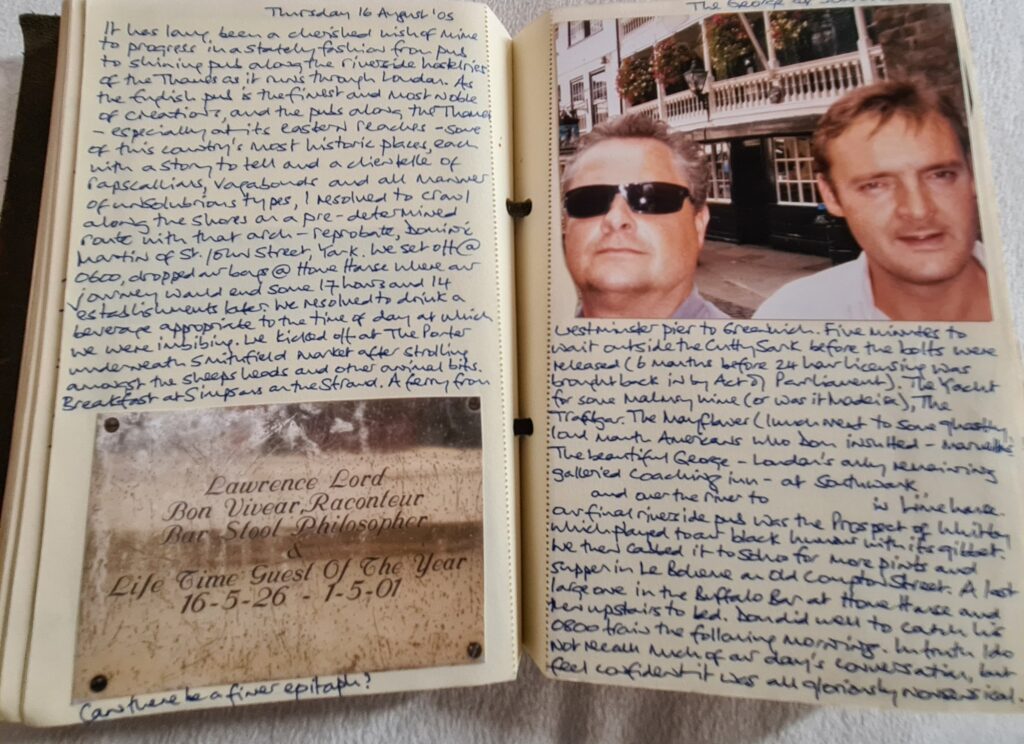 Thursday 16 August '05
It has long been a cherished wish of mine
to progress in a stately fashion from pub
to shining pub along the riverside hostelries
of the Thames as it runs through London. As
the English pub is the finest and most noble
of creations, and the pubs along the Thames
- especially at its eastern reaches - some
of this country's most historic places, each
with a story to tell and a clientelle of
rapscallions, vagabonds and all manner
of unsolubrious types, I resolved to crawl
along the shores on a pre-determined
route with that arch-reprobate, Dominic
Martin of St. John Street, York. We set off @
0600, dropped our bags @ Home House where our
journey would end some 17 hours and 14
establishments later. We resolved to drink a
beverage appropriate to the time of day at which
we were imbibing. We kicked off at The Porter
underneath Smithfield Market after strolling
amongst the sheeps heads and other animal bits.
Breakfast at Simpsons on the Strand. A ferry from
Lawrence Lord
Bon Vivear, Raconteur
Bar Stool Philosopher
&
Life Time Guest Of The Year
16-5-26 - 1-5-01
Can there be a finer epitaph?
The George of
Westminster pier to Greenwich. Five minutes to
wait outside the Cutty Sark before the bolts were
released (6 months before 24 hour licensing was
brought back in by Act of Parliament). The Yacht
for some Malmsey wine (or was it Madeira), The
Trafalgar. The Mayflower (lunch next to some ghastly
loud North Americans who Dom insulted -
The beautiful George - London's only remaining
galleried coaching inn - at Southwark
and over the river to in Limehouse.
Our final riverside pub was the Prospect of Whitby
which played to our black humour with its gibbet.
We then cabbed it to Soho for more pints and
supper in Le Boheme on Old Compton Street. A last
large one in the Buffalo Bar at Home House and
then upstairs to bed. Dom did well to catch his
0800 train the following morning. In truth I do
not recall much of our day's conversation, but
feel confident it was all gloriously nonsensical.